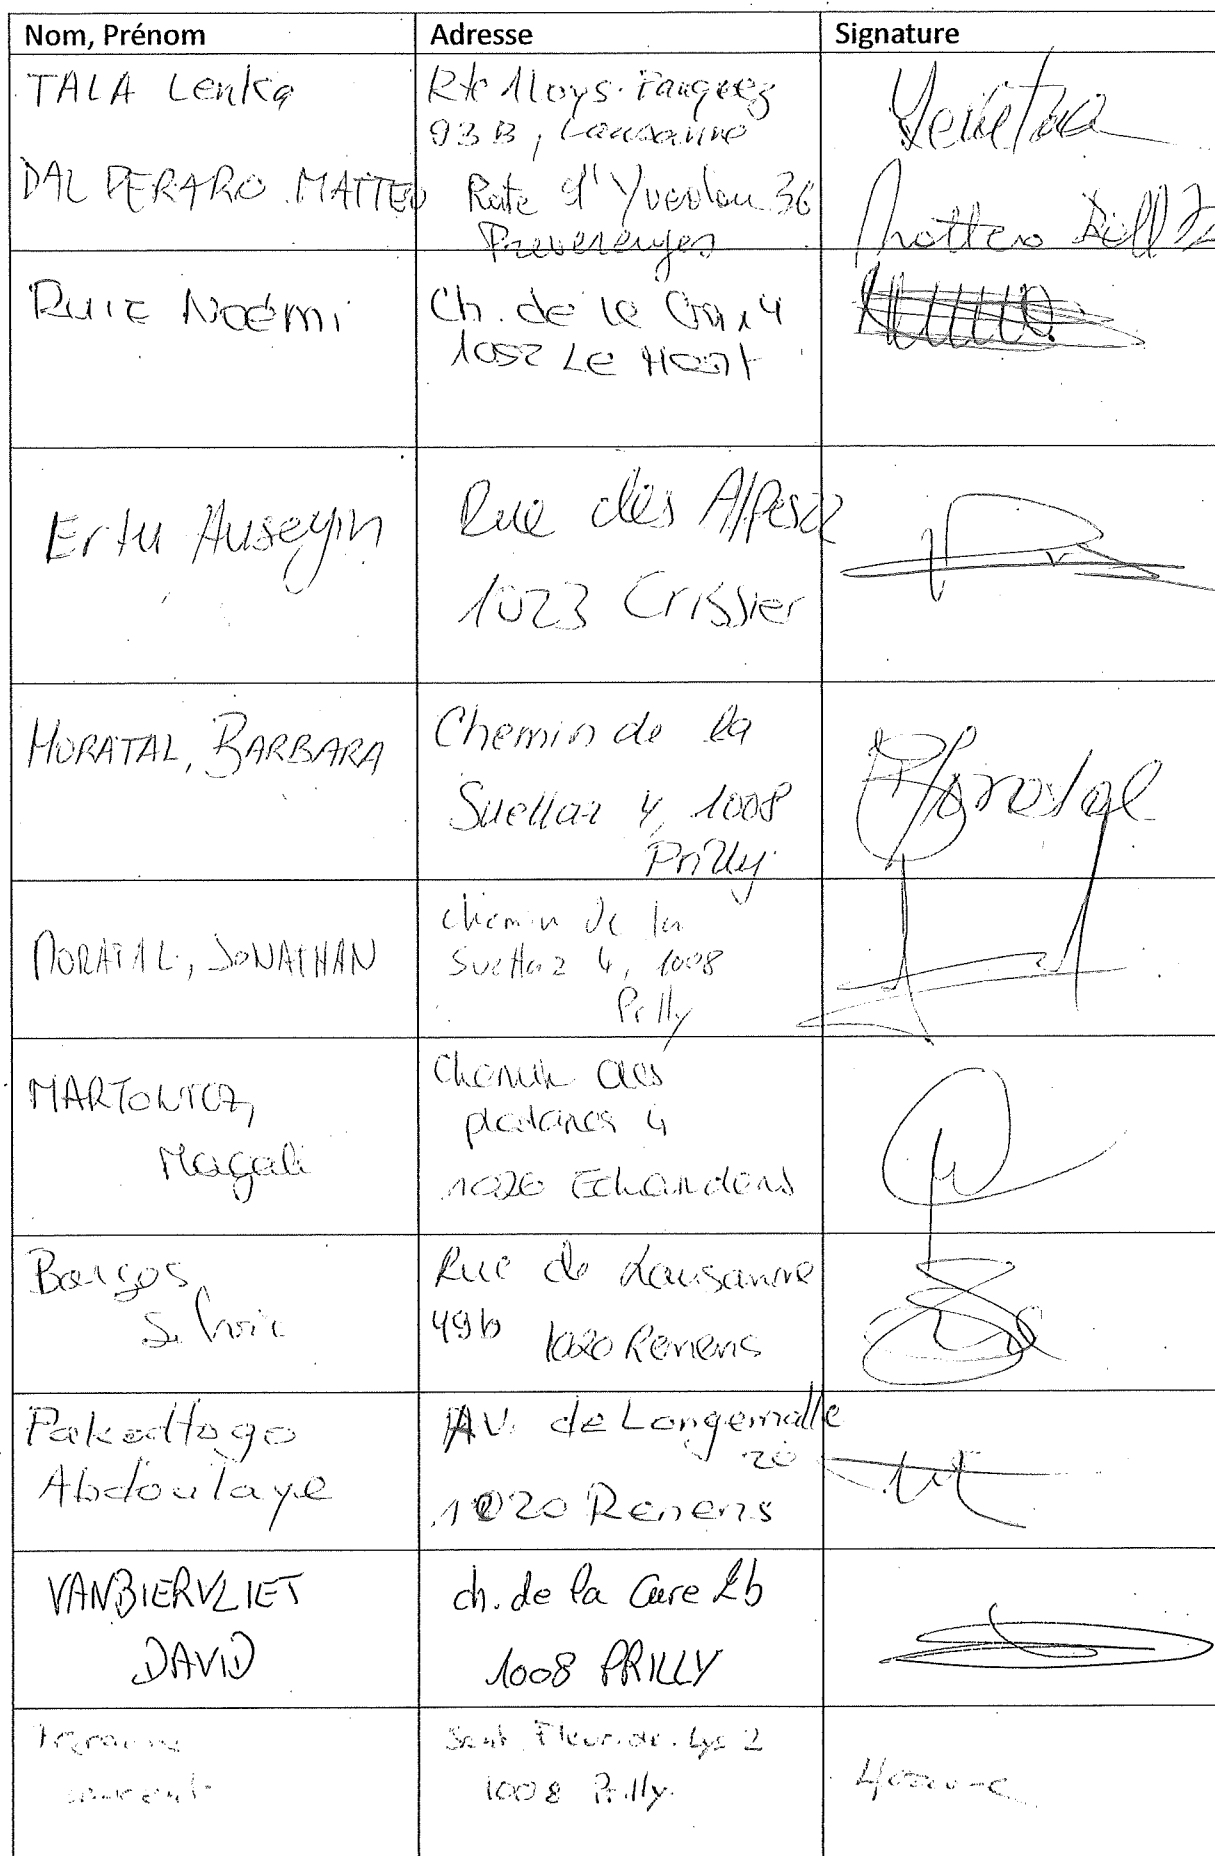 Nom, Prénom
Adresse
Signature
TALA Lenka
Rte Aloys-Fauquez
93B, Lausanne
DAL PERARO MATTEO
Route d'Yverdon 36
Preverenges
Matteo
Ruiz Noémi
Ch. de la Croix 4
1052 Le Mont
Ertu Huseyin
Rue des Alpes 22
1023 Crissier
MORATAL, BARBARA
Chemin de la
Suettaz 4, 1008
Prilly
Moratal
MORATAL, JONATHAN
chemin de la
Suettaz 4, 1008
Prilly
Magali
Chemin des
platanes 4
1026 Echandens
Rue de Lausanne
49b 1020 Renens
Abdoulaye
AV. de Longemalle
20
1020 Renens
VANBIERVLIET
DAVID
ch. de la Cure 2b
1008 PRILLY
Sent. Fleur-de-Lys 2
1008 Prilly